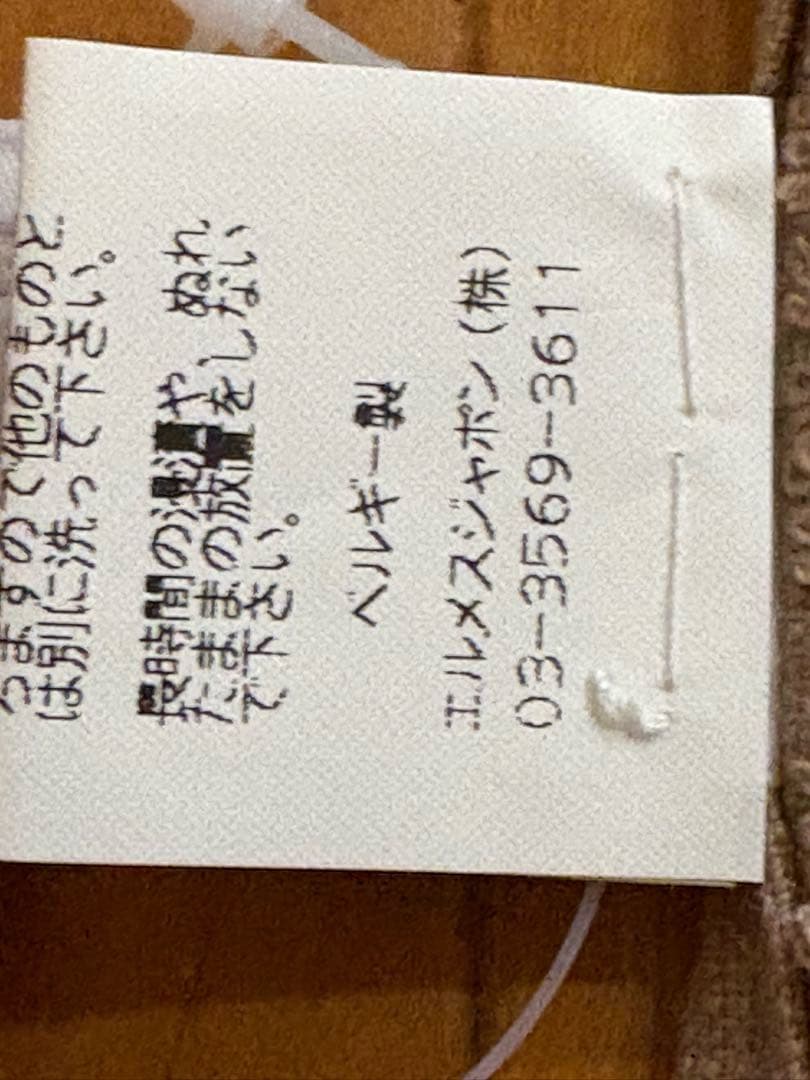 つますので他のものと
は別に洗って下さい。
長時間の浸漬や、ぬれ
たままの放置をしない
で下さい。
ベルギー製
エルメスジャポン(株)
03-3569-3611